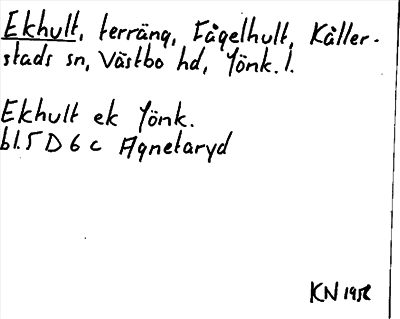 Ekhult, terräng, Fågelhult, Kåller-
stads sn, Västbo hd, Jönk. l.
Ekhult ek Jönk.
bl. 5 D 6 c Agnetaryd
KN 1958